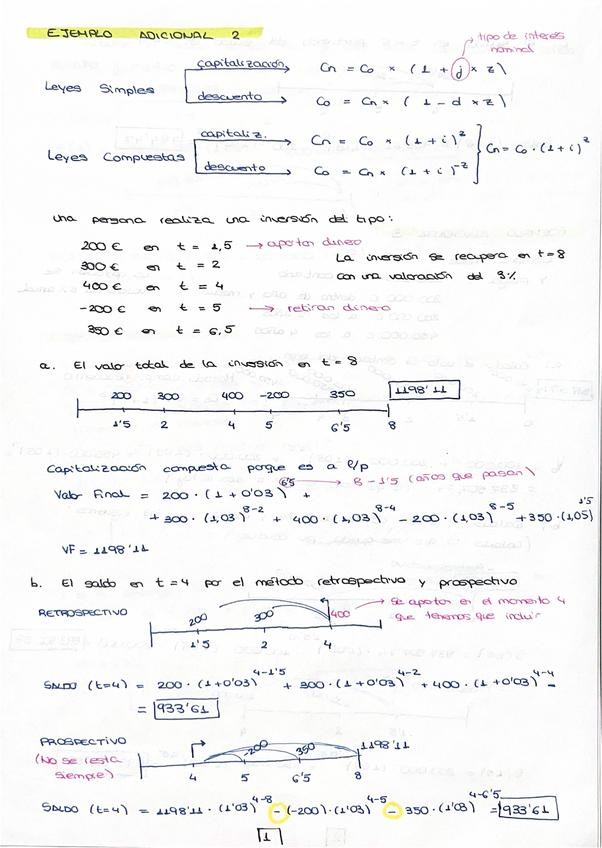 EJEMPLO ADICIONAL 2
tipo de interés nominal
Leyes Simples
capitalización Cn = Co × (1 + j × z)
descuento Co = Cn × (1 - d × z)
Leyes Compuestas
capitaliz. Cn = Co × (1 + i)^z
descuento Co = Cn × (1 + i)^-z
Cn = Co · (1 + i)^z
Una persona realiza una inversión del tipo:
200 € en t = 1,5 → aportar dinero
300 € en t = 2
400 € en t = 4
-200 € en t = 5 → retiran dinero
350 € en t = 6,5
La inversión se recupera en t=8
con una valoración del 3%
a. El valor total de la inversión en t = 8
200 300 400 -200 350 1198'11
1'5 2 4 5 6'5 8
Capitalización compuesta porque es a l/p
8 - 1'5 (años que pasan)
Valor Final = 200 · (1 + 0'03)^6'5 +
+ 300 · (1,03)^8-2 + 400 · (1,03)^8-4 - 200 · (1,03)^8-5 + 350 · (1,05)^1'5
VF = 1198'11
b. El saldo en t = 4 por el método retrospectivo y prospectivo
RETROSPECTIVO
200 300 400 → Se aportan en el momento 4
que tenemos que incluir
1'5 2 4
SALDO (t=4) = 200 · (1 + 0'03)^4-1'5 + 300 · (1 + 0'03)^4-2 + 400 · (1 + 0'03)^4-4 =
= 933'61
PROSPECTIVO
(No se resta
siempre)
-200 350 1198'11
4 5 6'5 8
SALDO (t=4) = 1198'11 · (1'03)^4-8 - (-200) · (1'03)^4-5 - 350 · (1'03)^4-6'5 = 933'61
1